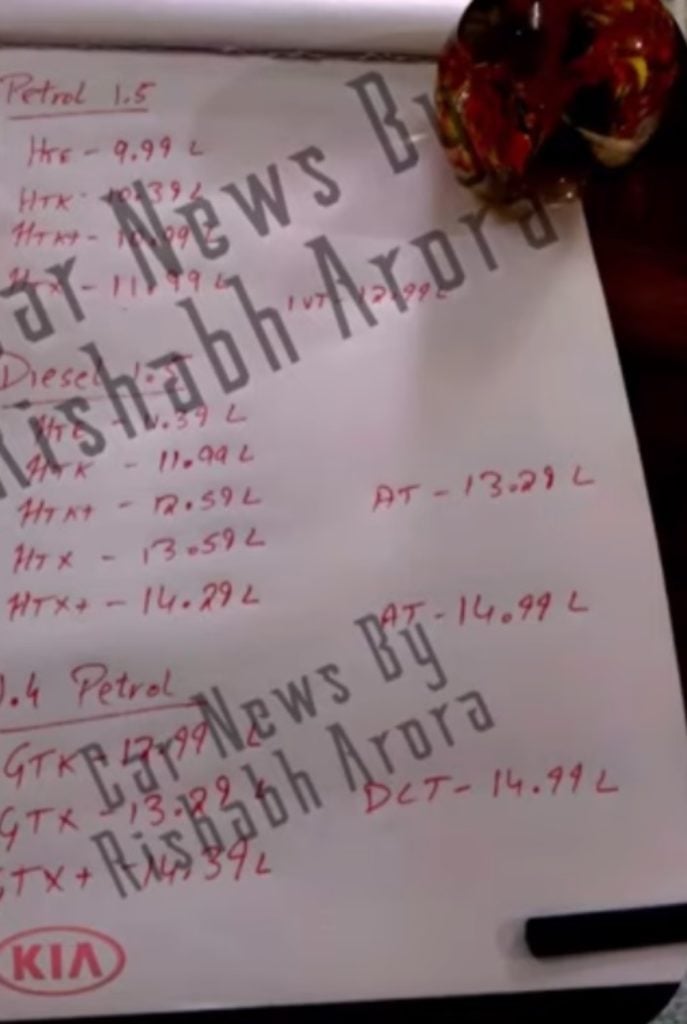 Petrol 1.5
HTE - 9.99 L
HTK - 10.39 L
HTK+ - 10.99 L
HTX - 11.99 L IVT - 12.99 L
Diesel 1.5
HTE - .39 L
HTK - 11.99 L
HTK+ - 12.59 L AT - 13.29 L
HTX - 13.59 L
HTX+ - 14.29 L AT - 14.99 L
1.4 Petrol
GTK - 12.99 L
GTX - 13.29 L DCT - 14.99 L
GTX+ - 14.39 L
KIA
Car News By
Rishabh Arora
Car News By
Rishabh Arora